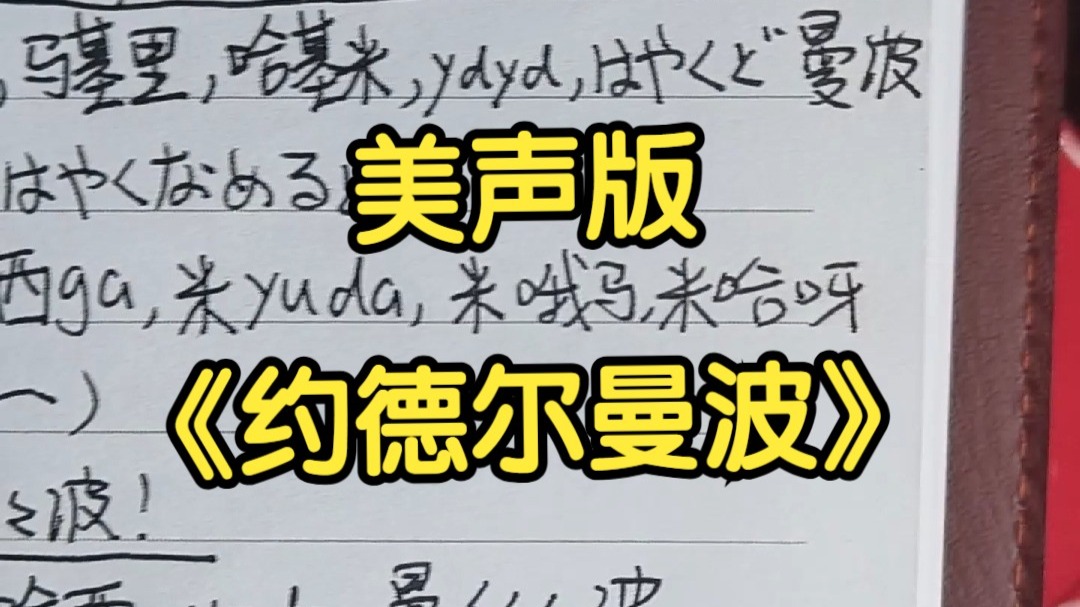 ,马基里,哈基米,ydyd,はやくど曼波
はやくなめる
美声版
西ga,米yuda,米哦马,米哈呀
《约德尔曼波》
一)
波!